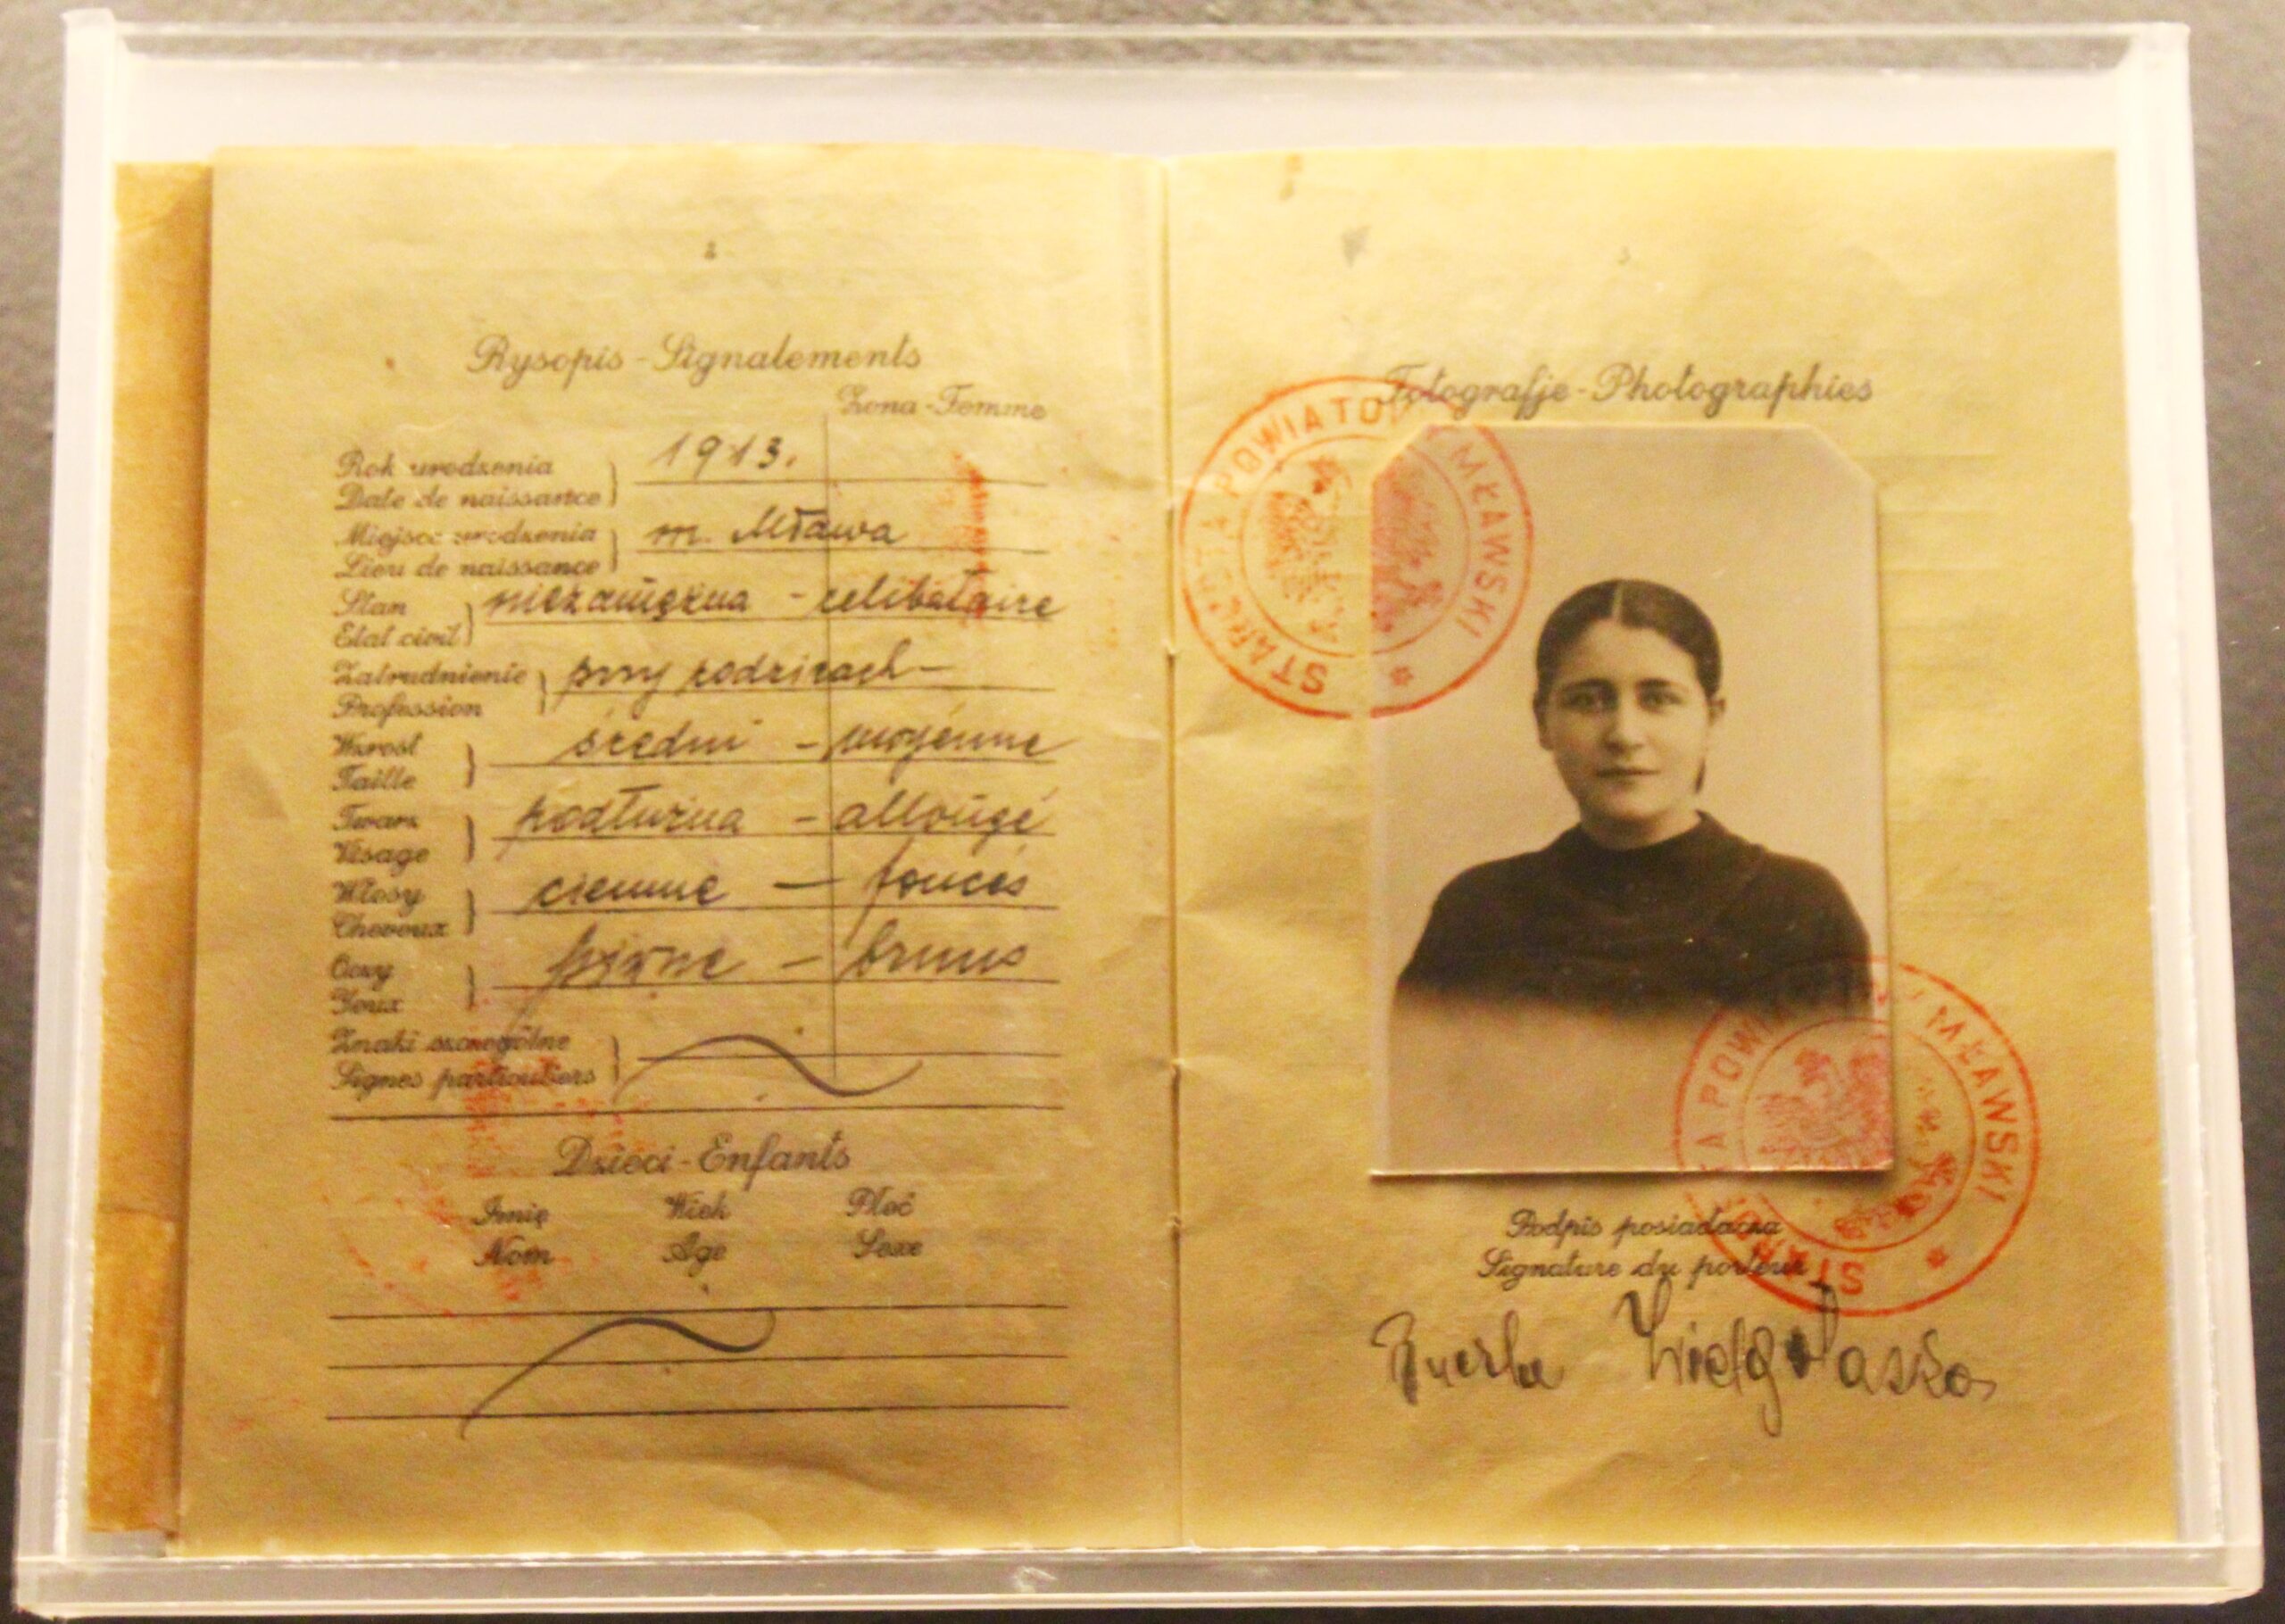 2
Rysopis - Signalements
Żona - Femme
Rok urodzenia 1913.
Date de naissance
Miejsce urodzenia m. Mława
Lieu de naissance
Stan niezamężna - celibataire
Etat civil
Zatrudnienie przy rodzicach -
Profession
Wzrost średni - moyenne
Taille
Twarz podłużna - allongé
Visage
Włosy ciemne - foncés
Cheveux
Oczy piwne - bruns
Yeux
Znaki szczególne
Signes particuliers
Dzieci - Enfants
Imię Wiek Płeć
Nom Age Sexe
3
Fotografje - Photographies
STAROSTA POWIATOWY MŁAWSKI *
STAROSTA POWIATOWY MŁAWSKI *
Podpis posiadacza
Signature du porteur